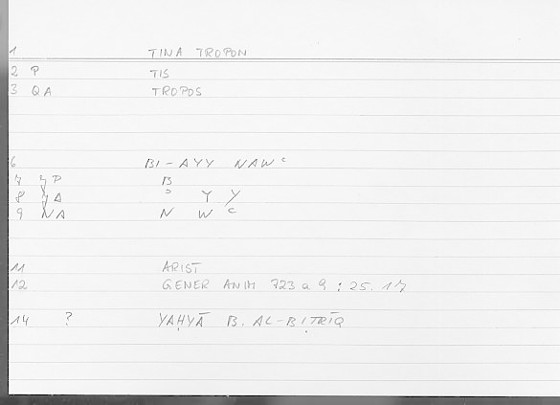 1 TINA TROPON
2 P TIS
3 QA TROPOS
6 BI-AYY NAWᶜ
7 P B
8 A ʾ Y Y
9 NA N W ᶜ
11 ARIST
12 GENER ANIM 723 a 9 : 25.17
14 ? YAḤYĀ B. AL-BIṬRĪQ